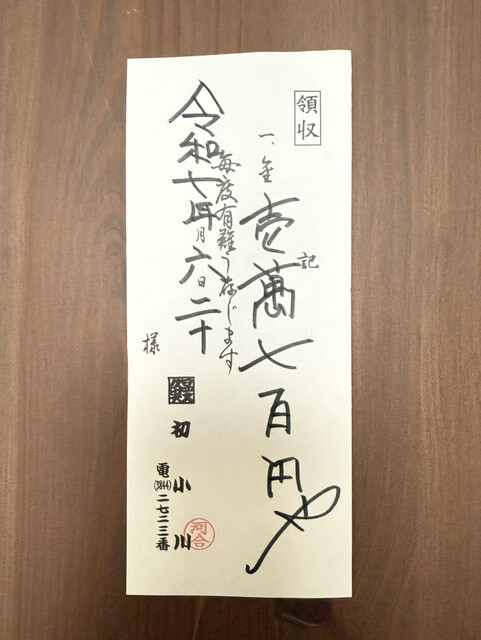 領収
記
一、金 壱萬七百円也
毎度有難う存じます
令和七年月六日二十
様
初小川
電(3844)二七二三番
河合